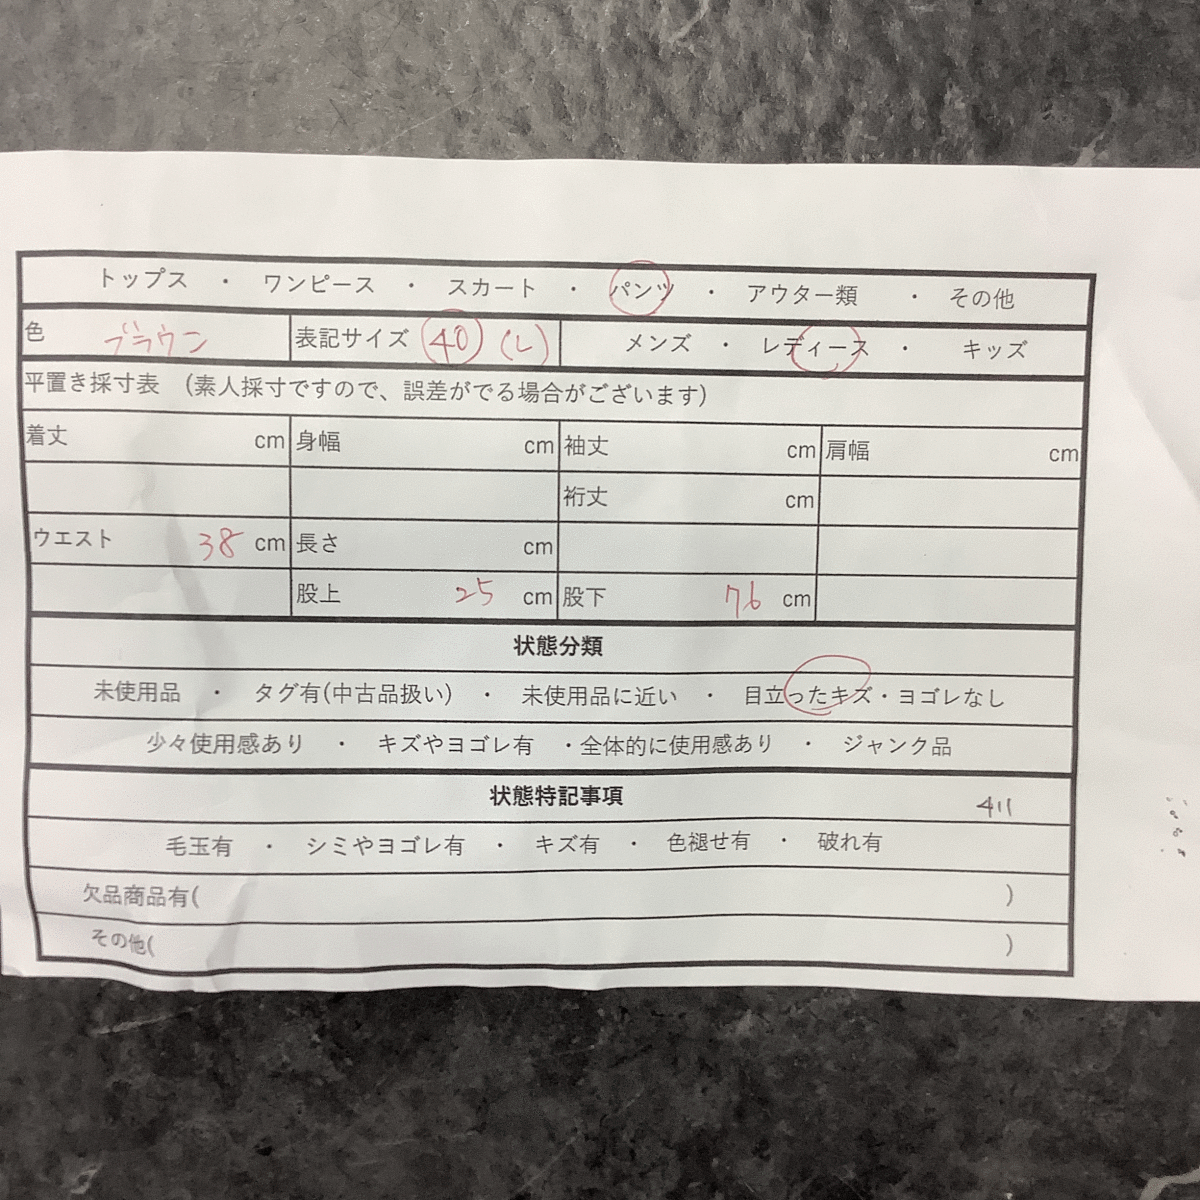 トップス ・ ワンピース ・ スカート ・ パンツ ・ アウター類 ・ その他
色 ブラウン 表記サイズ 40 (L) メンズ ・ レディース ・ キッズ
平置き採寸表 (素人採寸ですので、誤差がでる場合がございます)
着丈 cm 身幅 cm 袖丈 cm 肩幅 cm
裄丈 cm
ウエスト 38 cm 長さ cm
股上 25 cm 股下 76 cm
状態分類
未使用品 ・ タグ有(中古品扱い) ・ 未使用品に近い ・ 目立ったキズ・ヨゴレなし
少々使用感あり ・ キズやヨゴレ有 ・全体的に使用感あり ・ ジャンク品
状態特記事項 411
毛玉有 ・ シミやヨゴレ有 ・ キズ有 ・ 色褪せ有 ・ 破れ有
欠品商品有( )
その他( )